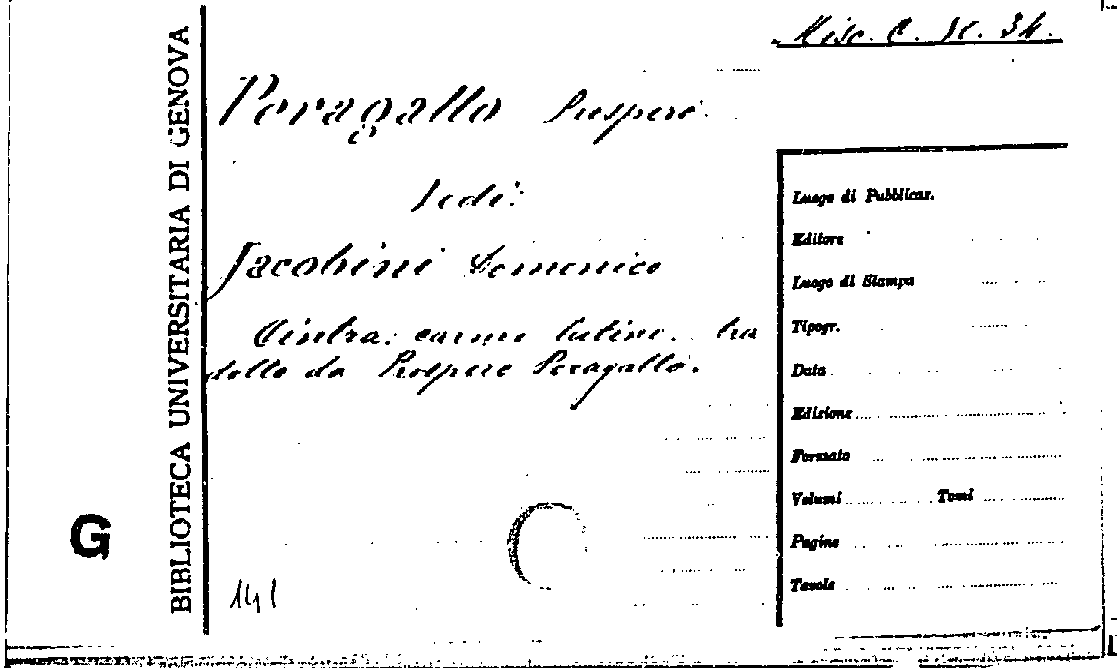 Misc. C. IC. 34.
Peragallo Prospero.
Vedi:
Jacobini Domenico
Cintra: carme latino. tra
dotto da Prospero Peragallo.
BIBLIOTECA UNIVERSITARIA DI GENOVA
G
141
Luogo di Pubblicaz.
Editore
Luogo di Stampa
Tipogr.
Data
Edizione
Formato
Volumi Tomi
Pagine
Tavole